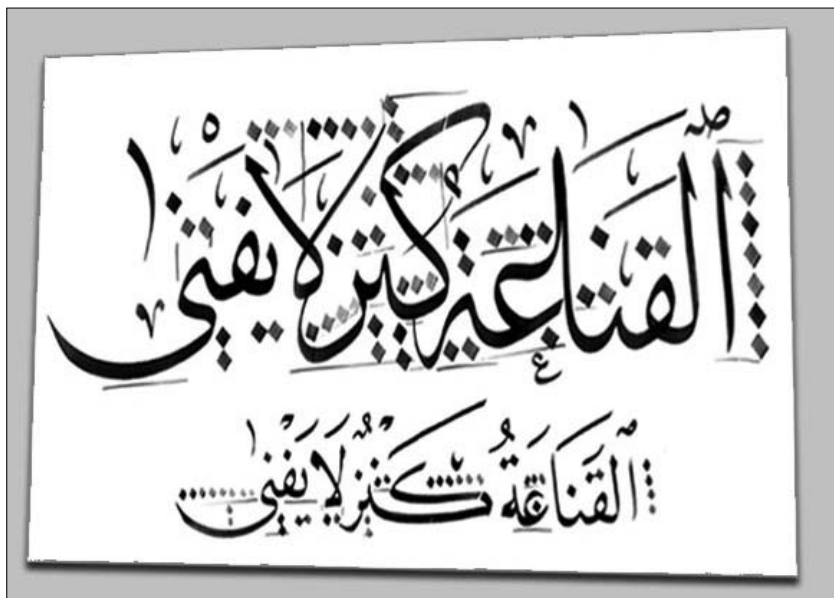 القناعة كنز لا يفنى
القَنَاعَةُ كَنْزٌ لَا يَفْنَى